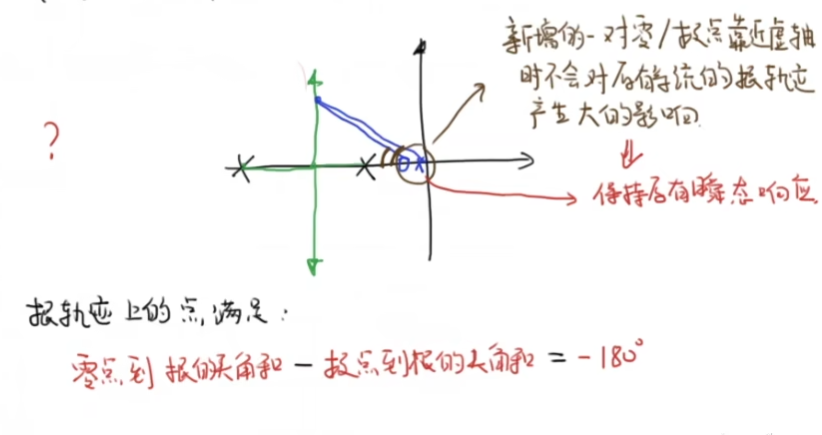 新增的一对零/极点靠近虚轴
时不会对原有系统的根轨迹
产生大的影响
?
⇓
保持原有瞬态响应.
根轨迹上的点,满足:
零点到根的夹角和 - 极点到根的夹角和 = -180°